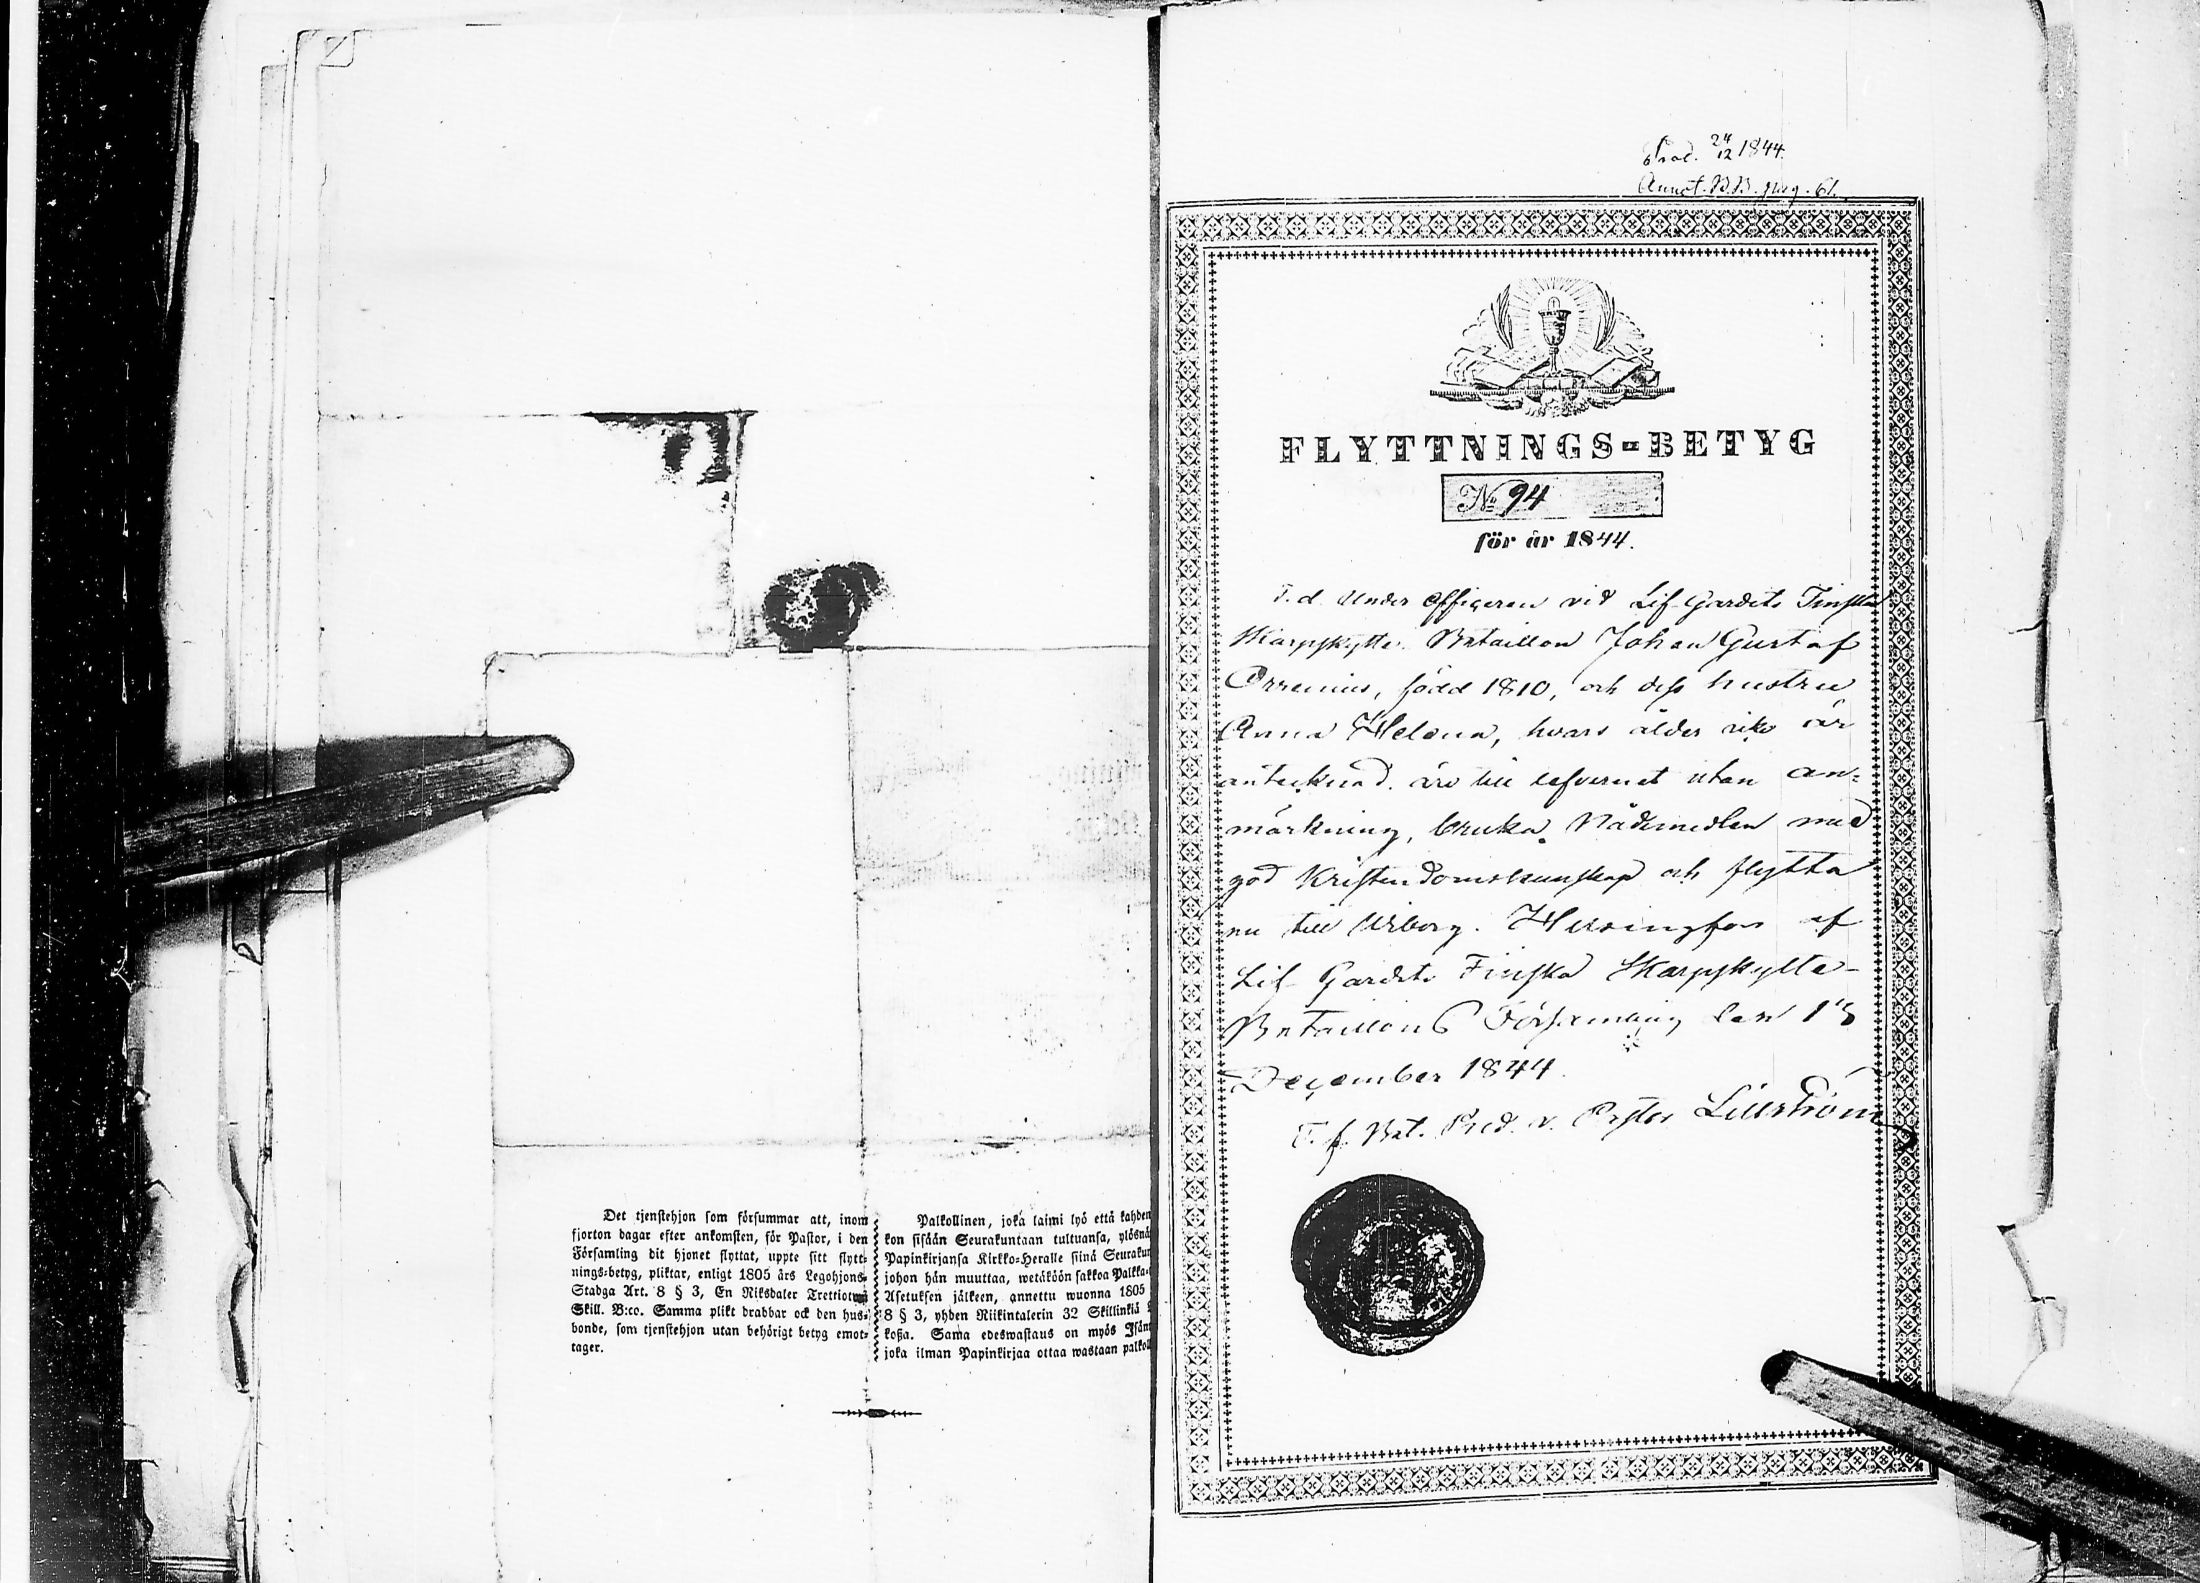 Det tjenstehjon som försummar att, inom
fjorton dagar efter ankomsten, för Pastor, i den
Församling dit hjonet flyttat, uppte sitt flytt-
nings-betyg, pliktar, enligt 1805 års Legohjons-
Stadga Art. 8 § 3, En Riksdaler Trettiotwå
Skill. B:co. Samma plikt drabbar ock den hus-
bonde, som tjenstehjon utan behörigt betyg emot-
tager.
Palkollinen, joka laimi lyö että kahden
kon sisään Seurakuntaan tultuansa, ylösnä
Papinkirjansa Kirkko-Heralle siinä Seurakun
johon hän muuttaa, wetäköön sakkoa Palkka-
Asetuksen jälkeen, annettu wuonna 1805
8 § 3, yhden Riikintalerin 32 Skillinkiä
koßa. Sama edeswastaus on myös Isän
joka ilman Papinkirjaa ottaa wastaan palkol
Prod. 24/12 1844.
Annot. B.B. pag. 61.
FLYTTNINGS-BETYG
No 94
för år 1844.
F.d. Under Officeren vid Lif-Gardets Finska
Skarpskytte Bataillon Johan Gustaf
Orrenius, född 1810, och dess hustru
Anna Helena, hvars ålder icke är
antecknad, äro till lefvernet utan an-
märkning, bruka Nådemedlen med
god Kristendomskunskap och flytta
nu till Wiborg. Helsingfors af
Lif Gardets Finska Skarpskytte-
Bataillons Församling den 13
December 1844.
T. f. Bat. Pred. v. Pastor Lillström